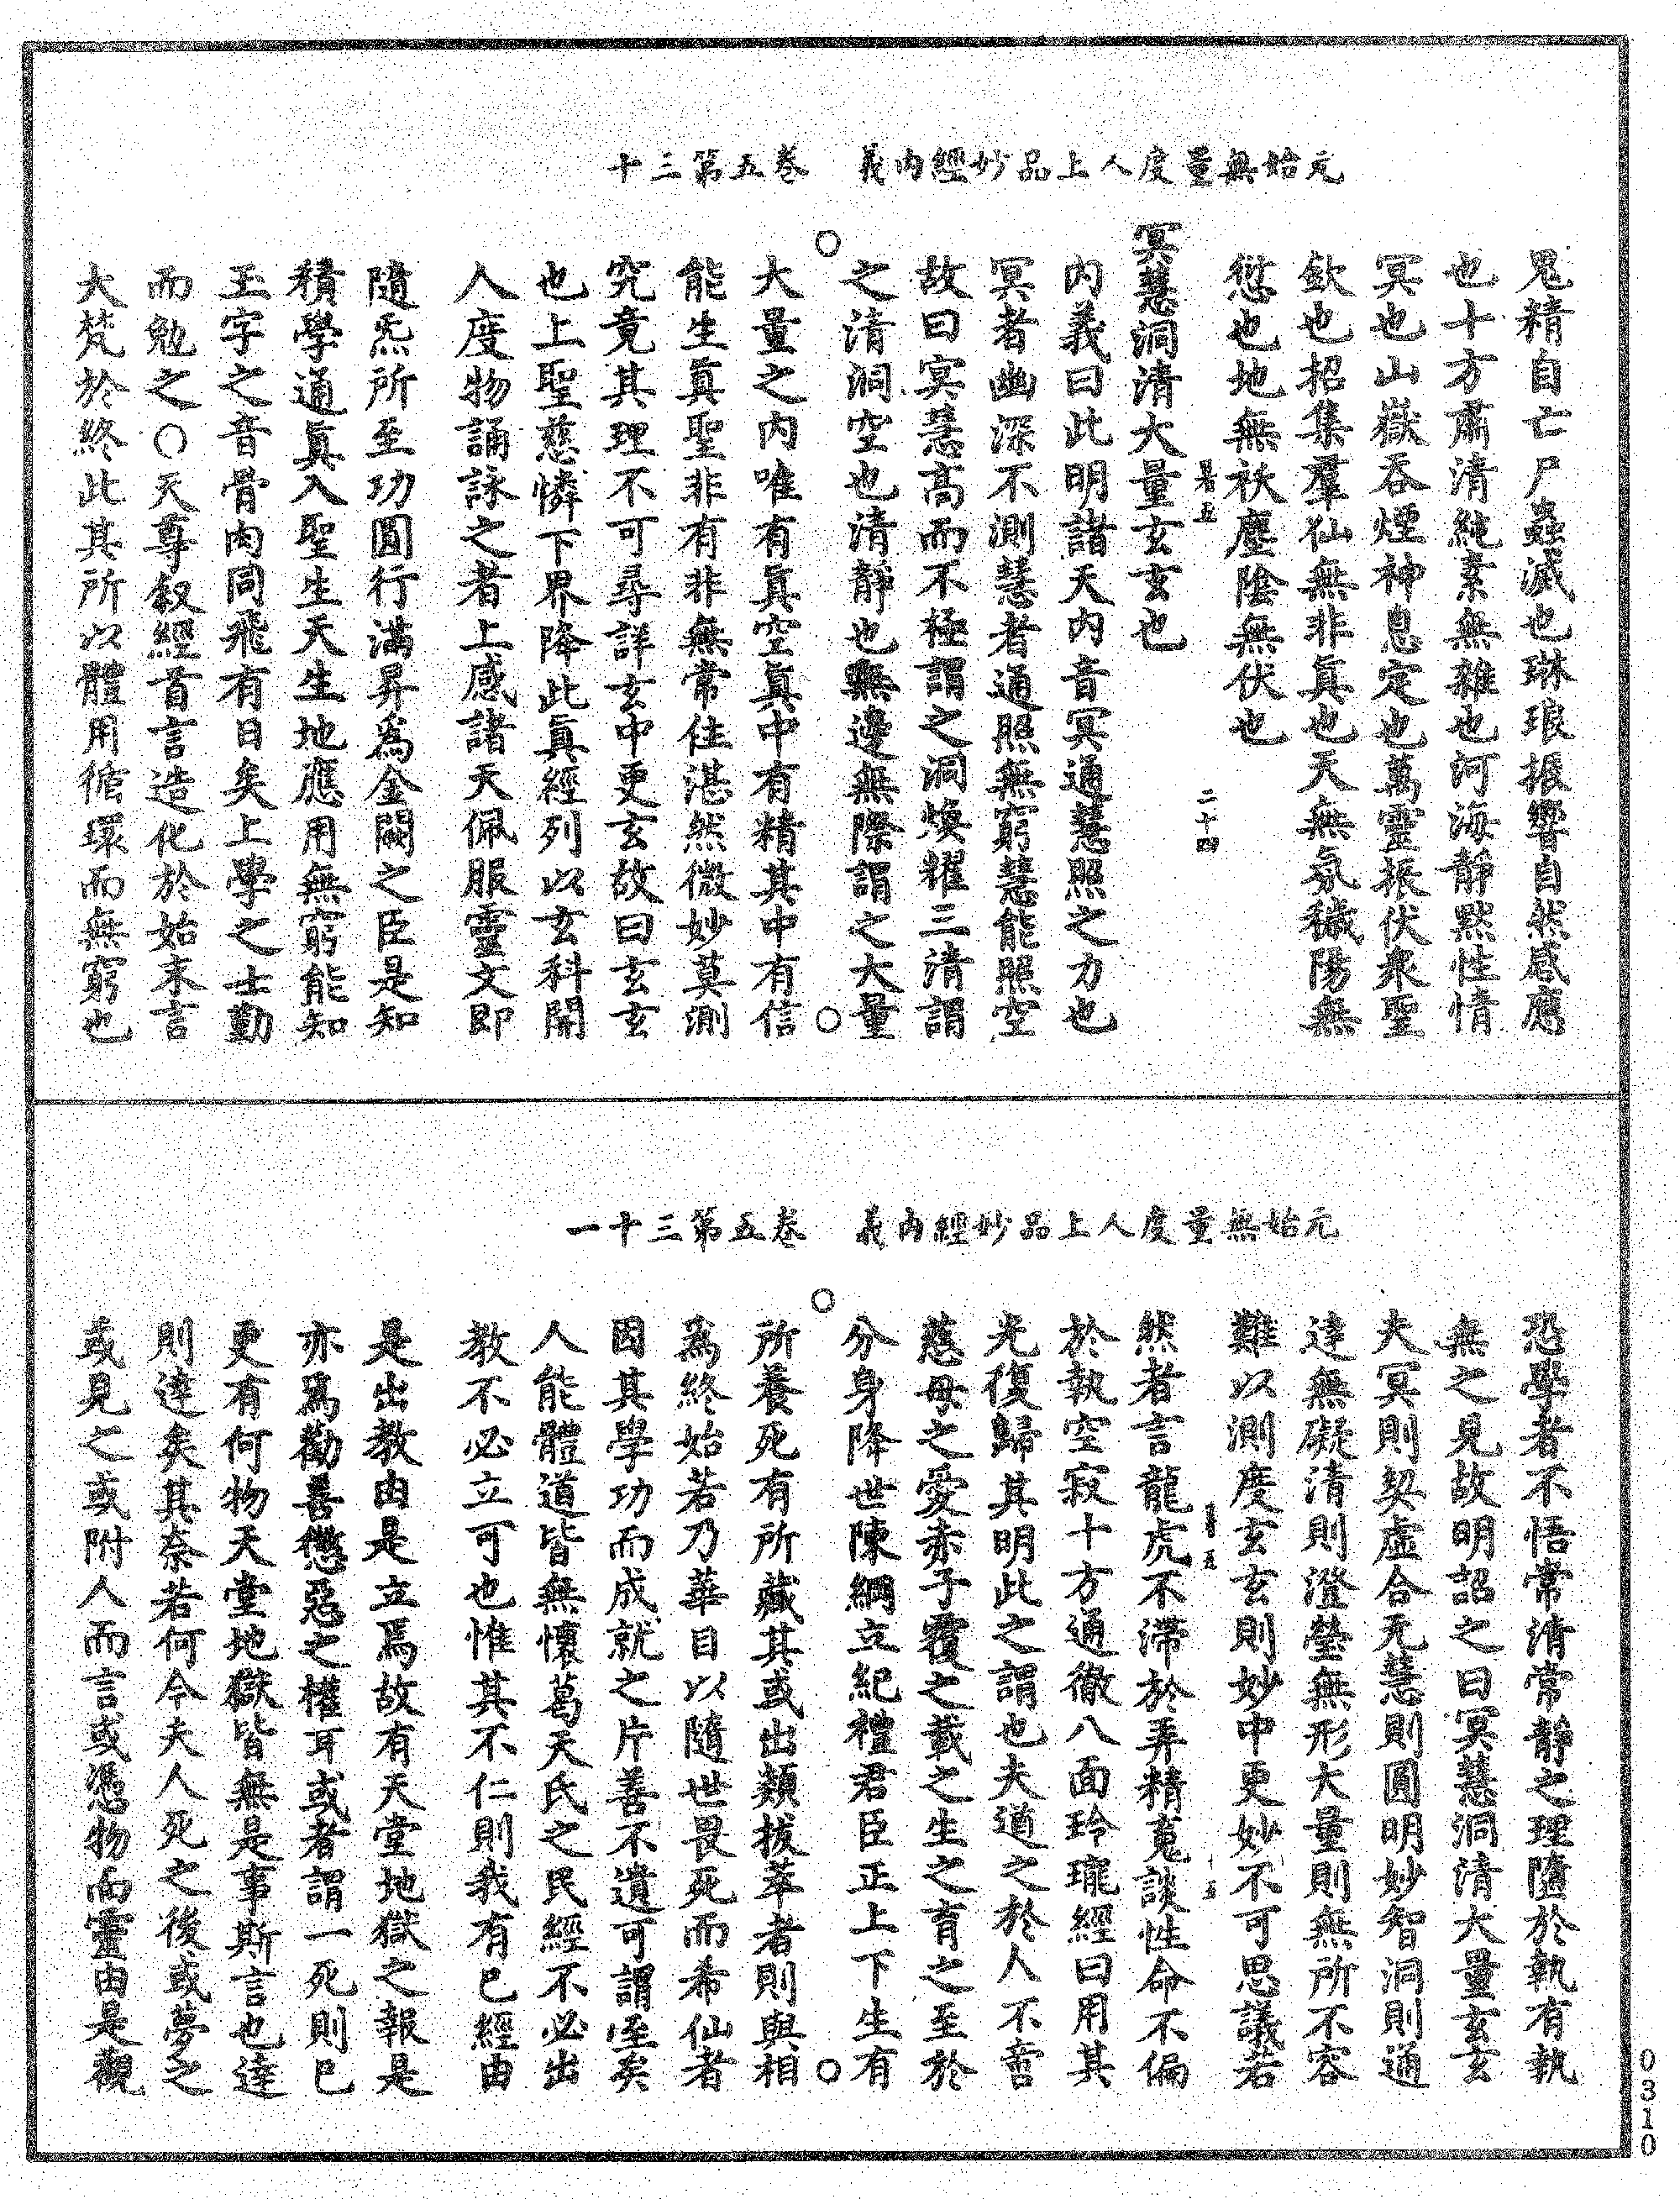 元始無量度人上品妙經內義　卷五第三十
鬼精自亡尸蟲滅也琳琅振響自然感應
也十方肅清純素無雜也河海靜默性情
冥也山嶽吞煙神息定也萬靈振伏衆聖
欽也招集羣仙無非眞也天無氛穢陽無
愆也地無袄塵陰無伏也
二十四
冥慧洞清大量玄玄也
內義曰此明諸天內音冥通慧照之力也
冥者幽深不測慧者通照無窮慧能照空
故曰冥慧高而不極謂之洞煥耀三清謂
之清洞空也清靜也無邊無際謂之大量
大量之內唯有眞空眞中有精其中有信
能生眞聖非有非無常住湛然微妙莫測
究竟其理不可尋詳玄中更玄故曰玄玄
也上聖慈憐下界降此眞經列以玄科開
人度物誦詠之者上感諸天佩服靈文即
隨炁所至功圓行滿昇爲金闕之臣是知
積學通眞入聖生天生地應用無窮能知
玉字之音骨肉同飛有日矣上學之士勤
而勉之○天尊叙經首言造化於始末言
大梵於終此其所以體用循環而無窮也
元始無量度人上品妙經內義　卷五第三十一
恐學者不悟常清常靜之理墮於執有執
無之見故明詔之曰冥慧洞清大量玄玄
夫冥則契虛合无慧則圓明妙智洞則通
達無礙清則澄瑩無形大量則無所不容
難以測度玄玄則妙中更妙不可思議若
然者言龍虎不滯於弄精䰟談性命不偏
於執空寂十方通徹八面玲瓏經曰用其
光復歸其明此之謂也夫道之於人不啻
慈母之愛赤子覆之載之生之育之至於
分身降世陳綱立紀禮君臣正上下生有
所養死有所藏其或出類拔萃者則與相
爲終始若乃華目以隨世畏死而希仙者
因其學功而成就之片善不遺可謂至矣
人能體道皆無懷葛天氏之民經不必出
教不必立可也惟其不仁則我有已經由
是出教由是立焉故有天堂地獄之報是
亦爲勸善懲惡之權耳或者謂一死則已
更有何物天堂地獄皆無是事斯言也達
則達矣其奈若何今夫人死之後或夢之
或見之或附人而言或憑物而靈由是觀
0310